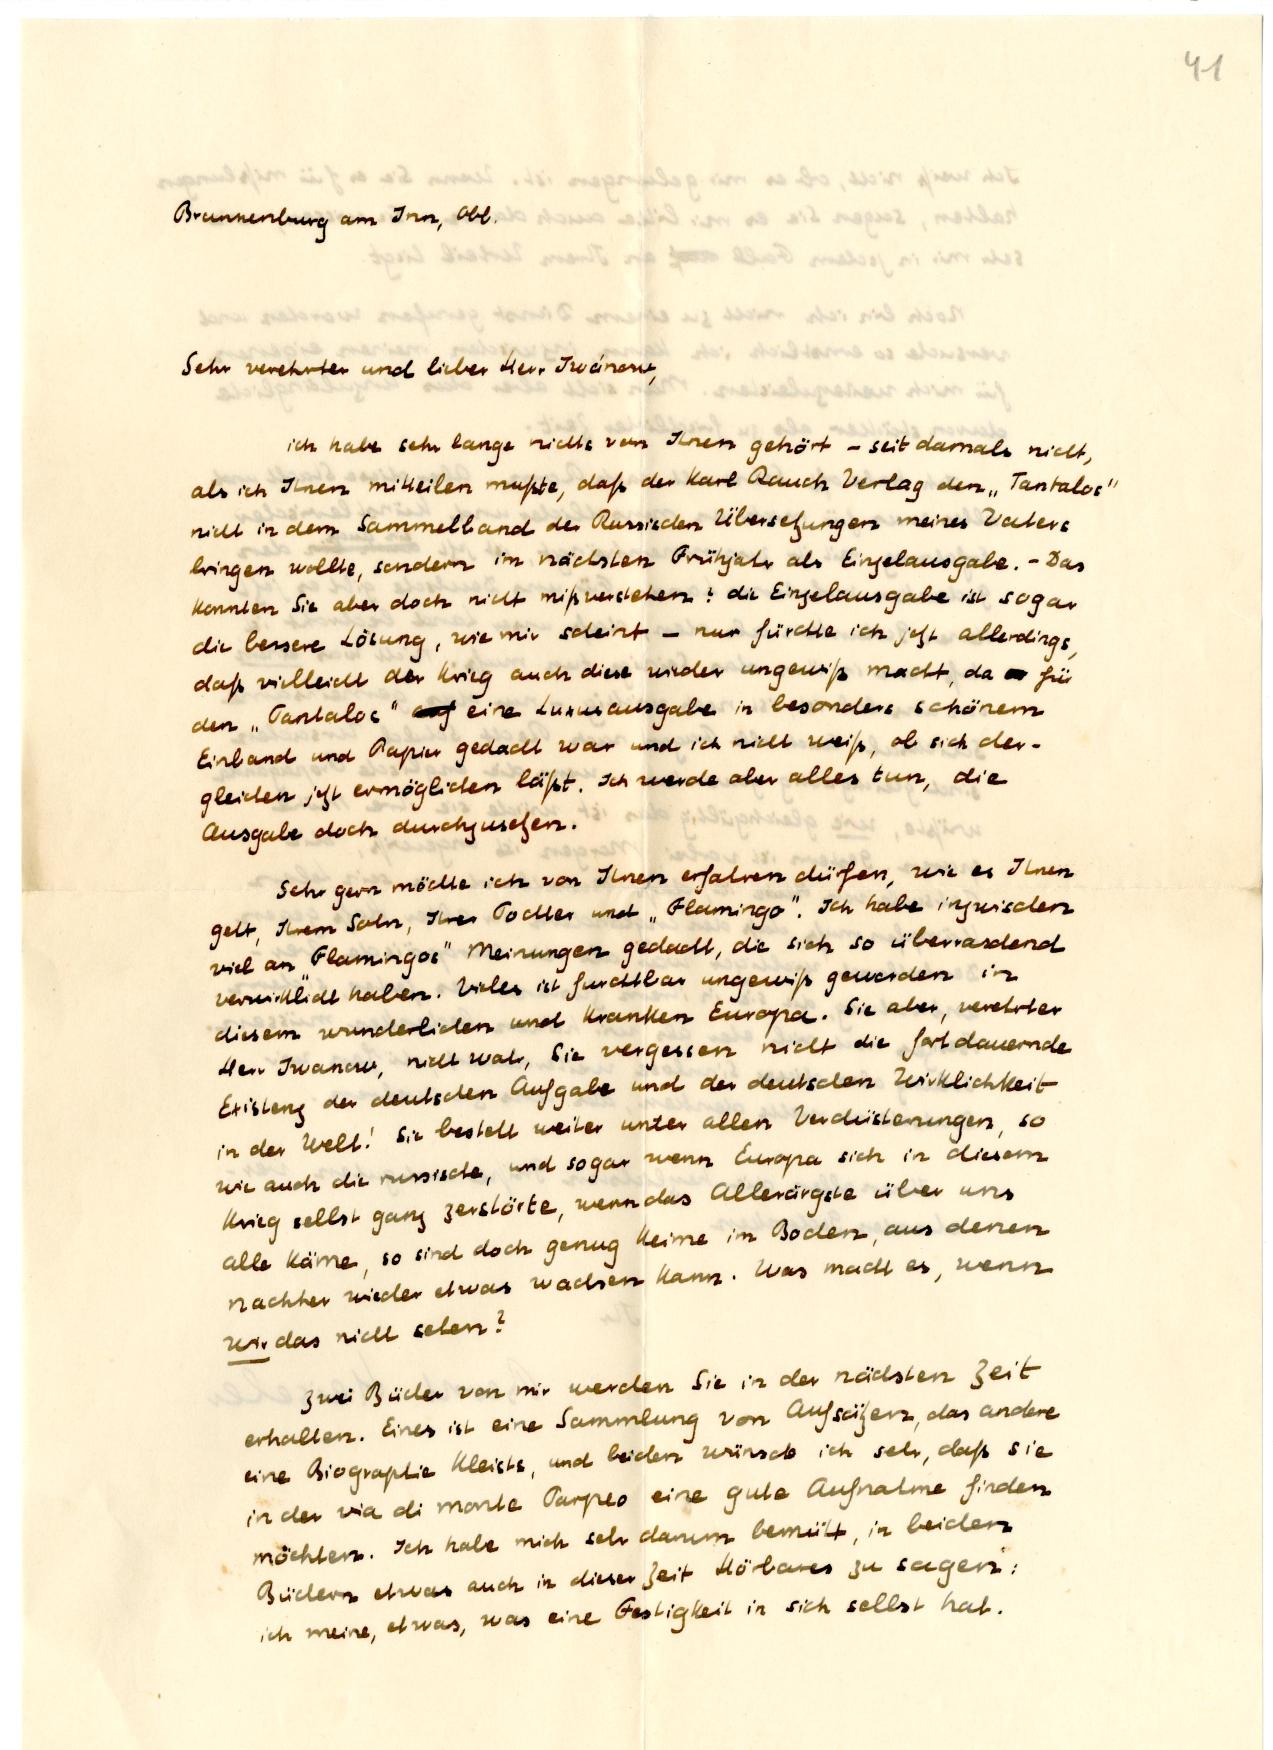 41
Brannenburg am Inn, Obb.
Sehr verehrter und lieber Herr Iwánow,
ich habe sehr lange nichts von Ihnen gehört – seit damals nicht,
als ich Ihnen mitteilen mußte, daß der Karl Rauch Verlag den „Tantalos"
nicht in dem Sammelband der Russischen Übersetzungen meines Vaters
bringen wollte, sondern im nächsten Frühjahr als Einzelausgabe. – Das
konnten Sie aber doch nicht mißverstehen? die Einzelausgabe ist sogar
die bessere Lösung, wie mir scheint – nur fürchte ich jetzt allerdings,
daß vielleicht der Krieg auch diese wieder ungewiß macht, da für
den „Tantalos" eine Luxusausgabe in besonders schönem
Einband und Papier gedacht war und ich nicht weiß, ob sich der-
gleichen jetzt ermöglichen läßt. Ich werde aber alles tun, die
Ausgabe doch durchzusetzen.
Sehr gern möchte ich von Ihnen erfahren dürfen, wie es Ihnen
geht, Ihrem Sohn, Ihrer Tochter und „Flamingo". Ich habe inzwischen
viel an „Flamingos" Meinungen gedacht, die sich so überraschend
verwirklicht haben. Vieles ist furchtbar ungewiß geworden in
diesem wunderlichen und kranken Europa. Sie aber, verehrter
Herr Iwanow, nicht wahr, Sie vergessen nicht die fortdauernde
Existenz der deutschen Aufgabe und der deutschen Wirklichkeit
in der Welt! Sie besteht weiter unter allen Verdüsterungen, so
wie auch die russische, und sogar wenn Europa sich in diesem
Krieg selbst ganz zerstörte, wenn das Allerärgste über uns
alle käme, so sind doch genug Keime im Boden, aus denen
nachher wieder etwas wachsen kann. Was macht es, wenn
wir das nicht sehen?
Zwei Bücher von mir werden Sie in der nächsten Zeit
erhalten. Eines ist eine Sammlung von Aufsätzen, das andere
eine Biographie Kleists, und beiden wünsche ich sehr, daß sie
in der via di monte Tarpeo eine gute Aufnahme finden
möchten. Ich habe mich sehr darum bemüht, in beiden
Büchern etwas auch in dieser Zeit Hörbares zu sagen:
ich meine, etwas, was eine Festigkeit in sich selbst hat.